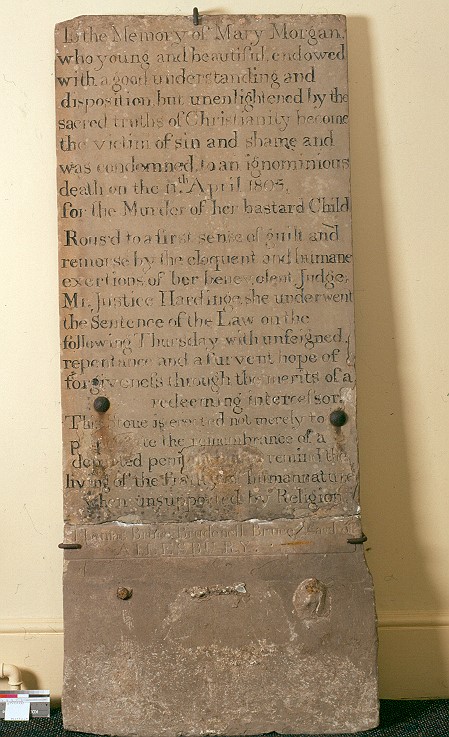 To the Memory of Mary Morgan,
who young and beautiful, endowed
with a good understanding and
disposition but unenlightened by the
sacred truths of Christianity become
the victim of sin and shame and
was condemned to an ignominious
death on the 11th April 1805,
for the Murder of her bastard Child
Rous'd to a first sense of guilt and
remorse by the eloquent and humane
exertions of her benevolent Judge,
Mr. Justice Hardinge, she underwent
the Sentence of the Law on the
following Thursday with unfeigned
repentance and a furvent hope of
forgiveness through the merits of a
redeeming intercessor.
This stone is erected not merely to
the remembrance of a
departed penitent remind the
living of the frailty of human nature
when unsupported by Religion.
Thomas Bruce Brudenell Bruce Earl of
AILESBURY